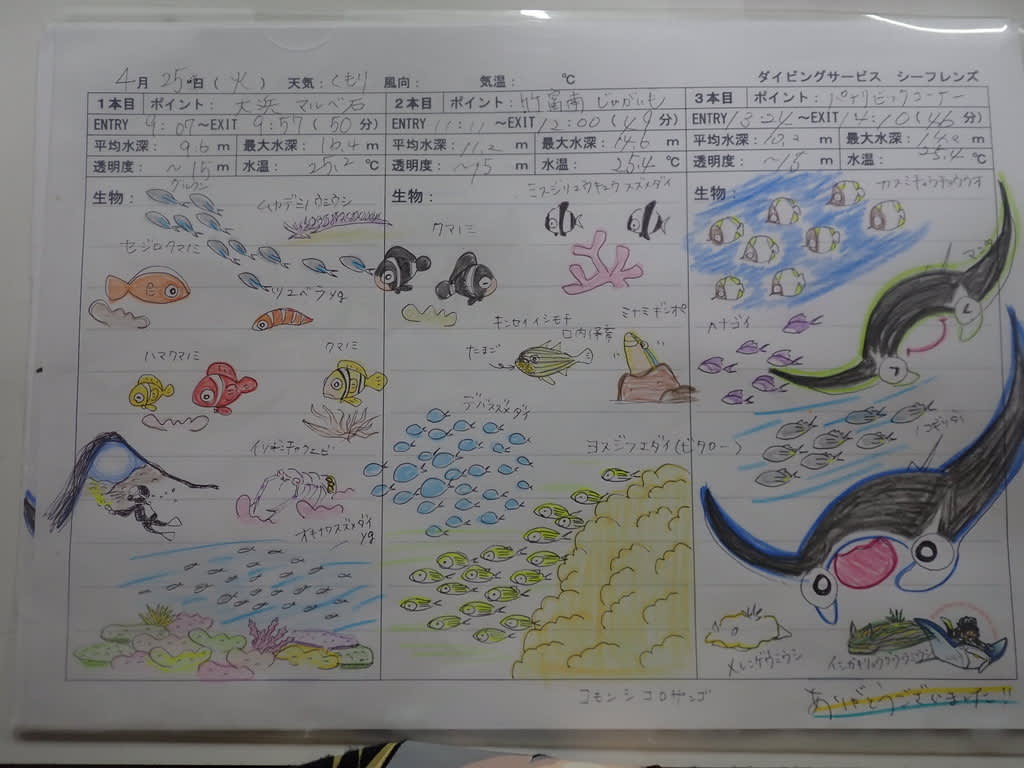 4月 25日 (火) 天気: くもり 風向: 気温: ℃
ダイビングサービス シーフレンズ
1本目 ポイント: 大浜 マルベ石
ENTRY 9:07~EXIT 9:57(50分)
平均水深: 9.6 m 最大水深: 16.4 m
透明度: ~15 m 水温: 25.2 ℃
生物:
グルクン
ムカデミノウミウシ
セジロクマノミ
ツユベラyg
ハマクマノミ
クマノミ
イソギンチャクエビ
オキナワスズメダイ
yg
2本目 ポイント: 竹富南 じゃがいも
ENTRY 11:11~EXIT 12:00(49分)
平均水深: 11.2 m 最大水深: 14.6 m
透明度: ~15 m 水温: 25.4 ℃
生物:
ミスジリュウキュウスズメダイ
クマノミ
キンセイイシモチ
口内保育
たまご
ミナミギンポ
デバスズメダイ
ヨスジフエダイ(ビタロー)
コモンシコロサンゴ
3本目 ポイント:
ENTRY 13:24~EXIT 14:10(46分)
平均水深: 10.2 m 最大水深: 14.2 m
透明度: ~15 m 水温: 25.4 ℃
生物:
カスミチョウチョウウオ
マンタ
ハナゴイ
ノコギリダイ
メレンゲウミウシ
イシガキリュウグウウミウシ
ありがとうございました!!